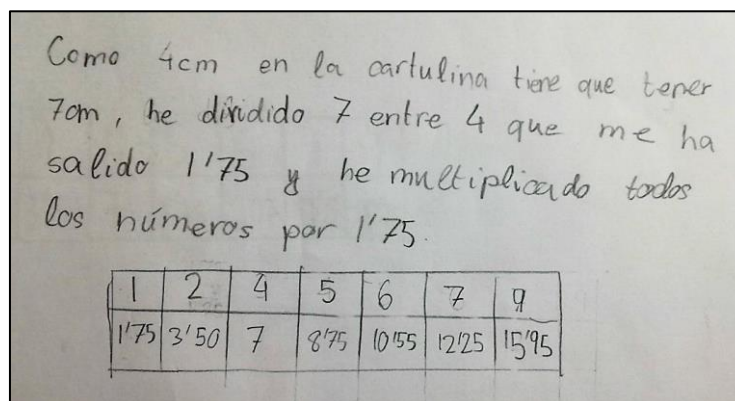 Como 4cm en la cartulina tiene que tener
7cm, he dividido 7 entre 4 que me ha
salido 1'75 y he multiplicado todos
los números por 1'75.
1 2 4 5 6 7 9
1'75 3'50 7 8'75 10'55 12'25 15'95